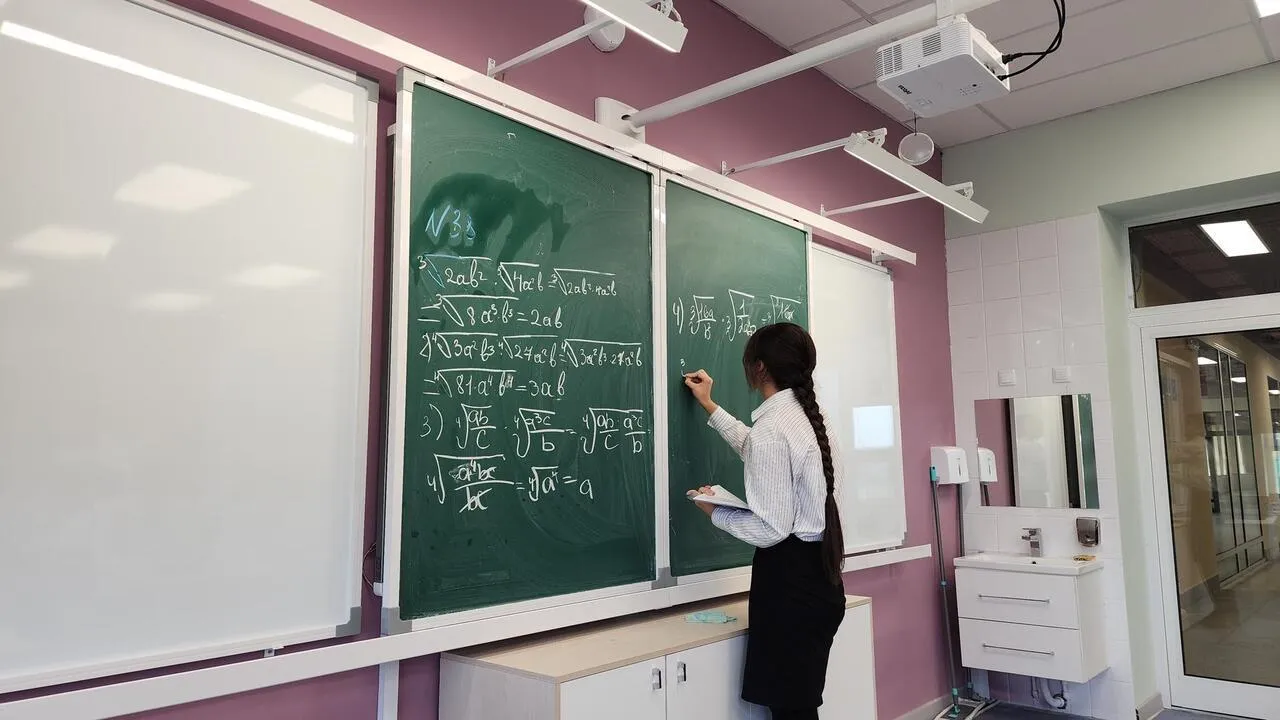 № 38
³√2ab² · ³√4a²b = ³√2ab²·4a²b
= ³√8a³b³ = 2ab
2) ⁴√3a²b³ · ⁴√27a²b = ⁴√3a²b³·27a²b
= ⁴√81·a⁴b⁴ = 3ab
3) ⁴√ab/c · ⁴√a³c/b = ⁴√ab/c · a³c/b =
⁴√a⁴bc/bc = ⁴√a⁴ = a
4) ³√16a/b · ³√1/2ab = ³√
³